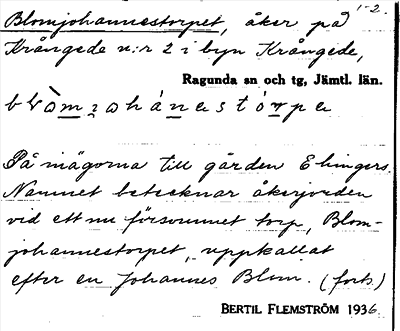 1-2.
Blomjohannestorpet, åker på
Krångede n:r 2 i byn Krångede,
Ragunda sn og tg, Jämtl. län.
På mägorna till gården Elingers.
Namnet betecknar åkerjorden
vid ett nu försvunnet torp, Blom-
johannestorpet, uppkallat
efter en Johannes Blom. (forts.)
BERTIL FLEMSTRÖM 1936.